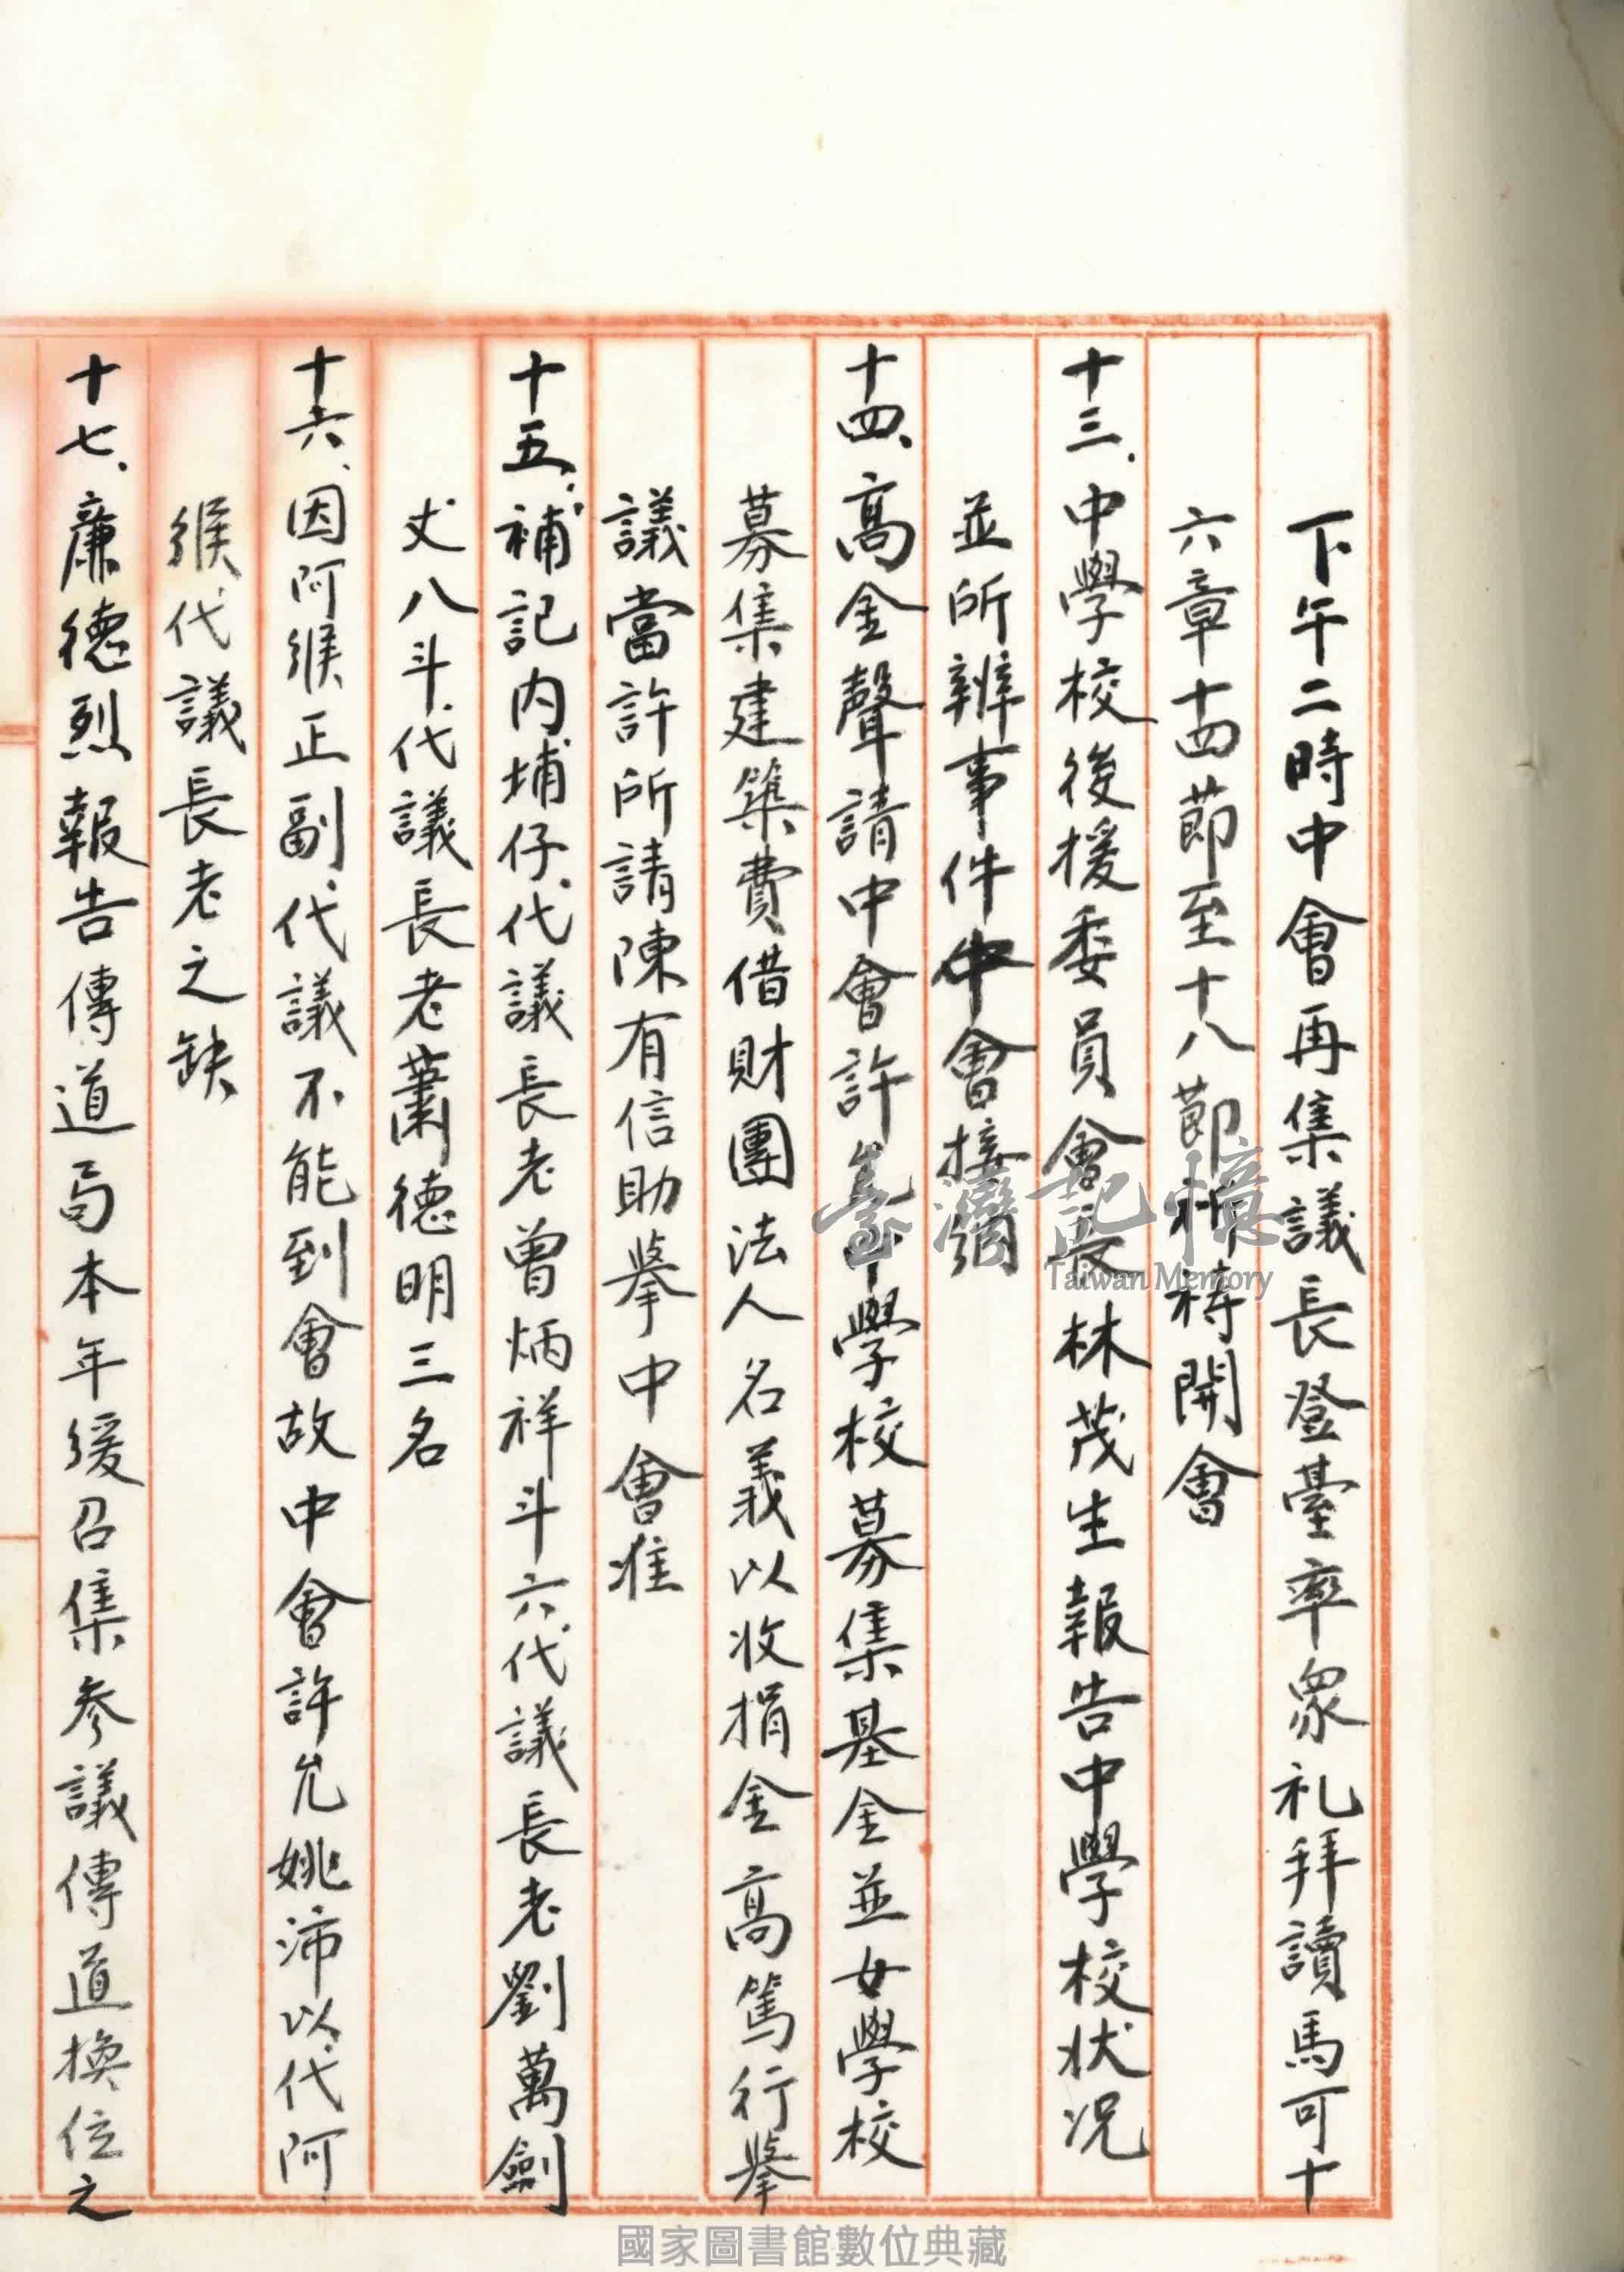 下午二時中會再集議長登臺率眾礼拜讀馬可十
六章十四節至十八節祈禱開會
十三、中學校後援委員會長林茂生報告中學校狀况
並所辦事件中會接納
十四、高金聲請中會許長中學校募集基金並女學校
募集建築費借財團法人名義以收捐金高篤行舉
議當許所請陳有信助舉中會准
十五、補記内埔仔代議長老曾炳祥斗六代議長老劉萬劍
丈八斗代議長老蕭德明三名
十六、因阿緱正副代議不能到會故中會許允姚沛以代阿
緱代議長老之缺
十七、廉德烈報告傳道局本年緩召集參議傳道換位之
臺灣記憶
Taiwan Memory
國家圖書館數位典藏